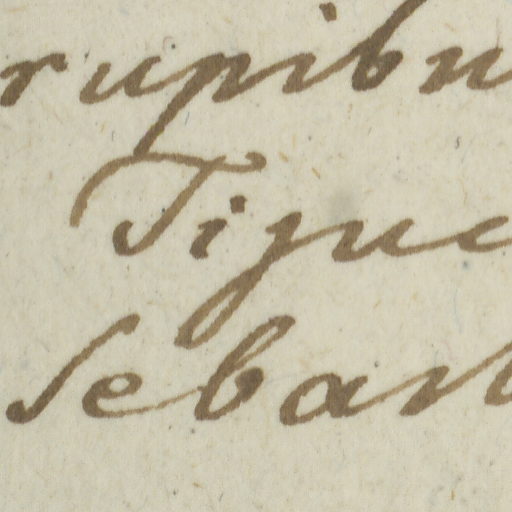 rupibu
Tijuc
Sebast